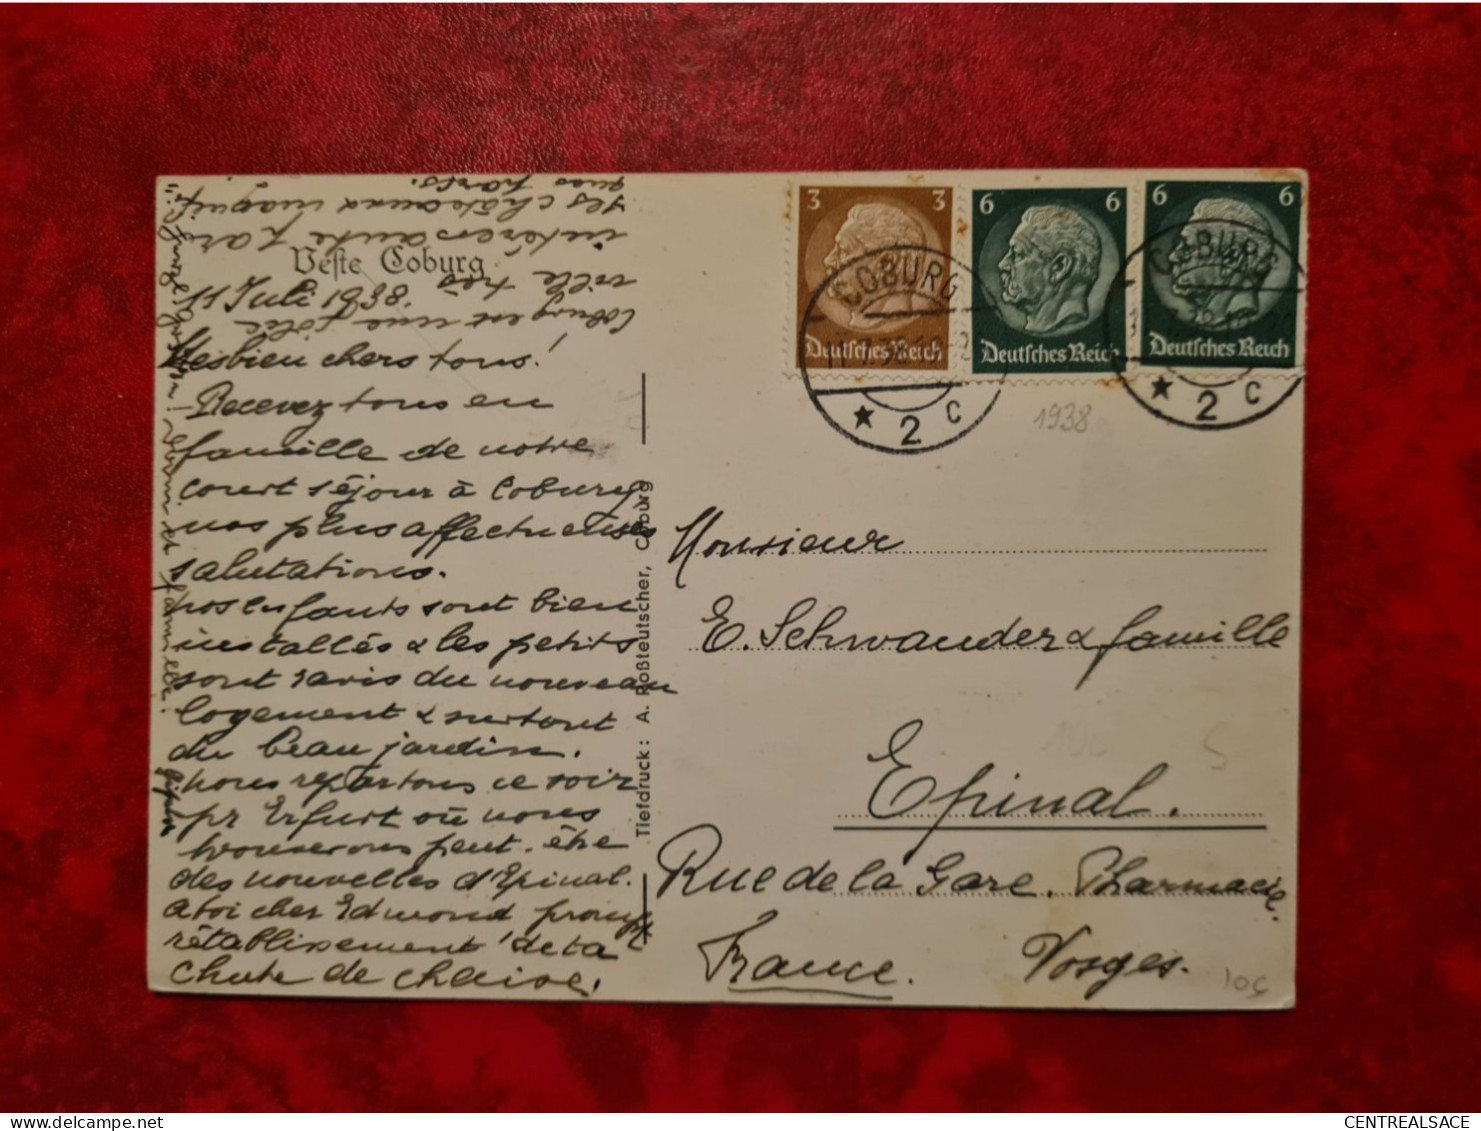 Veste Coburg
11 Juli 1938.
Mes bien chers tous!
Recevez tous en
famille de notre
court séjour à Coburg
nos plus affectueuses
salutations.
nos enfants sont bien
installés & les petits
sont ravis du nouveau
logement & surtout
du beau jardin.
nous repartons ce soir
pr Erfurt où nous
trouverons peut-être
des nouvelles d'Epinal.
a toi cher Edmond prompt
rétablissement de ta
chute de chaise!
Coburg est une jolie
ville très
intéressante par
ses châteaux magnif
et famille
Tiefdruck: A. Roßteutscher, Coburg
3 3
Deutsches Reich
6 6
Deutsches Reich
6 6
Deutsches Reich
COBURG
2 c
COBURG
2 c
1938
Monsieur
E. Schwander & famille
Epinal.
Rue de la Gare. Pharmacie.
France. Vosges.
10€
CENTREALSACE